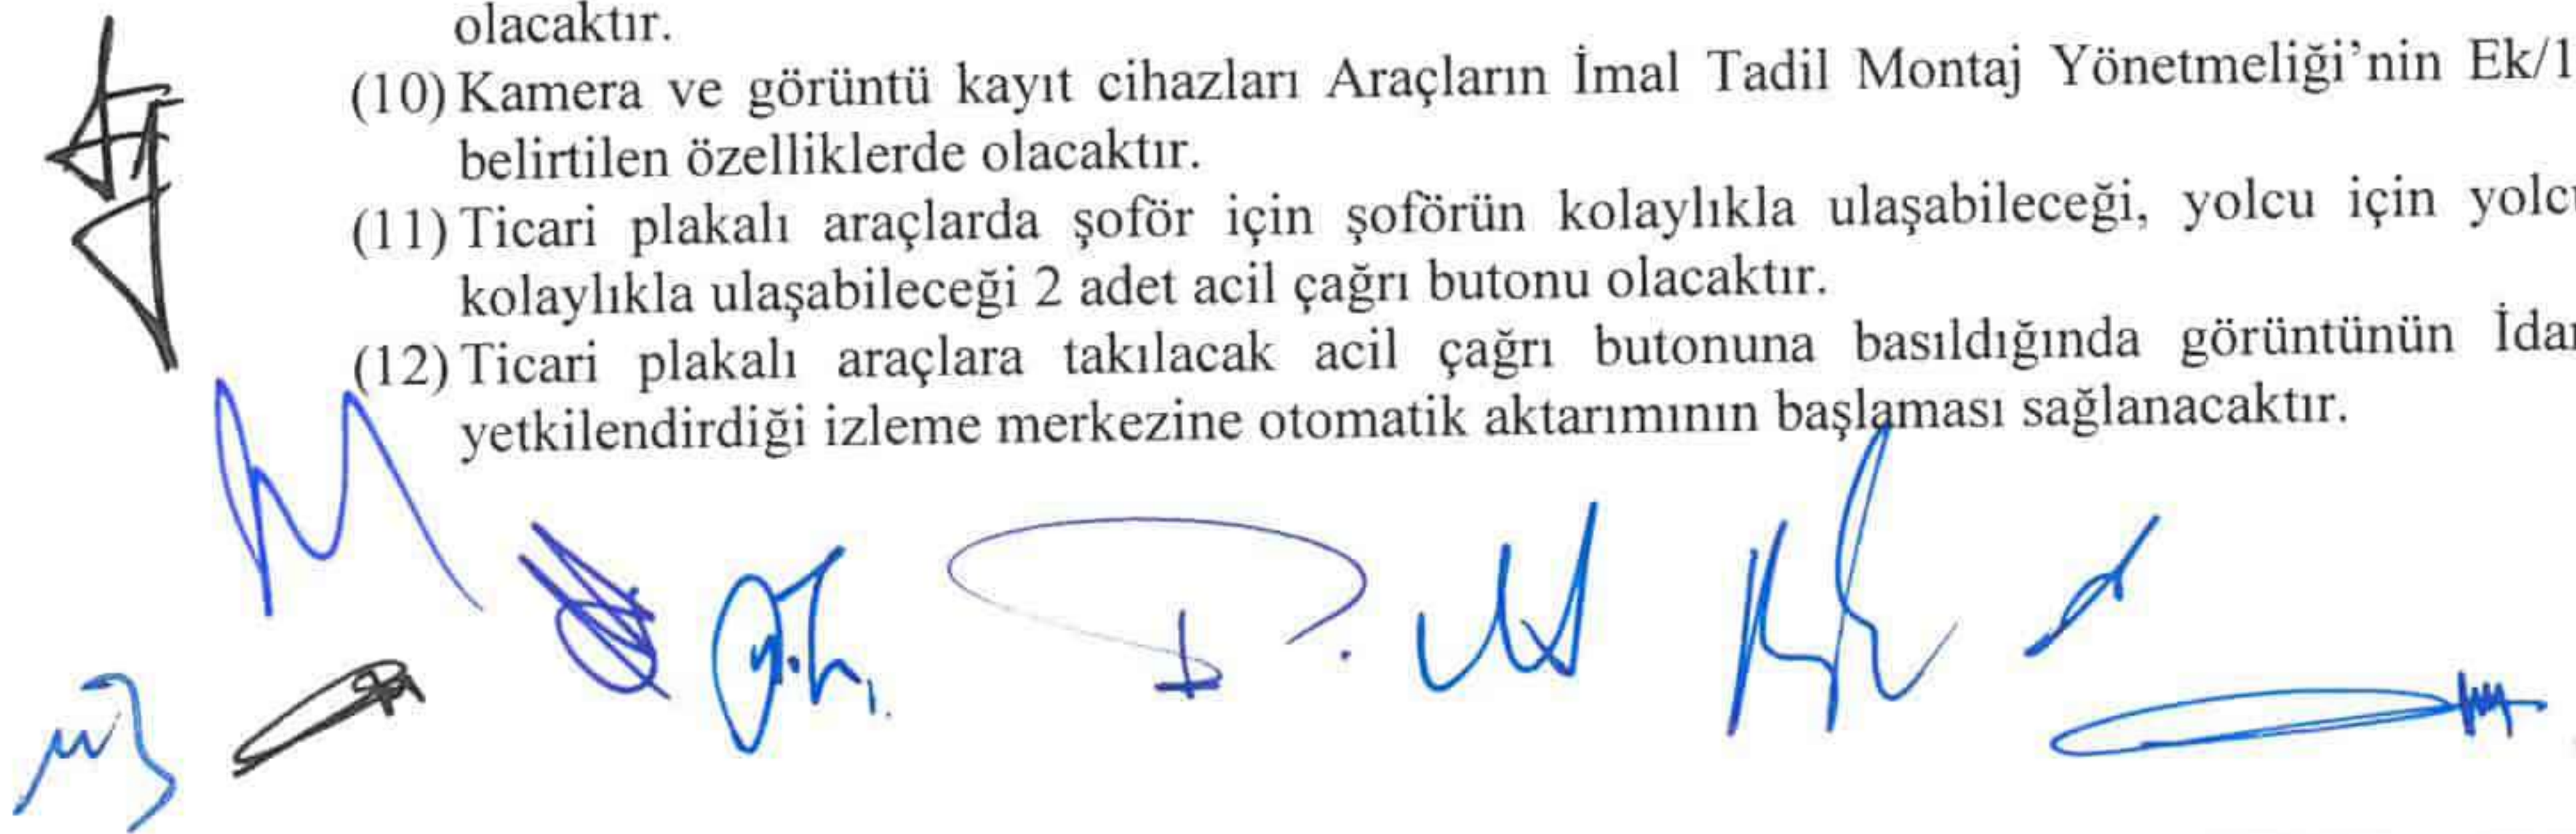 olacaktır.
(10) Kamera ve görüntü kayıt cihazları Araçların İmal Tadil Montaj Yönetmeliği'nin Ek/1
belirtilen özelliklerde olacaktır.
(11) Ticari plakalı araçlarda şoför için şoförün kolaylıkla ulaşabileceği, yolcu için yolcu
kolaylıkla ulaşabileceği 2 adet acil çağrı butonu olacaktır.
(12) Ticari plakalı araçlara takılacak acil çağrı butonuna basıldığında görüntünün İdar
yetkilendirdiği izleme merkezine otomatik aktarımının başlaması sağlanacaktır.